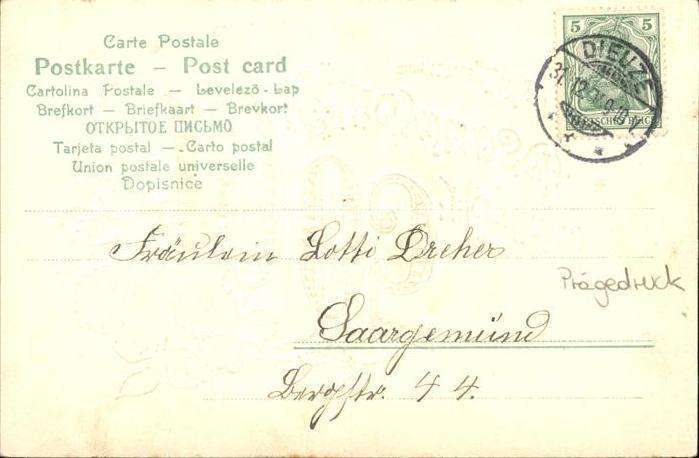 Carte Postale
Postkarte – Post card
Cartolina Postale – Levelező-Lap
Brefkort – Briefkaart – Brevkort
ОТКРЫТОЕ ПИСЬМО
Tarjeta postal – Carto postal
Union postale universelle
Dopisnice
5 5
DIEUZE
31.12.
DEUTSCHES REICH
Fräulein Lotti Dreher
Prägedruck
Saargemünd
Bergstr. 44.